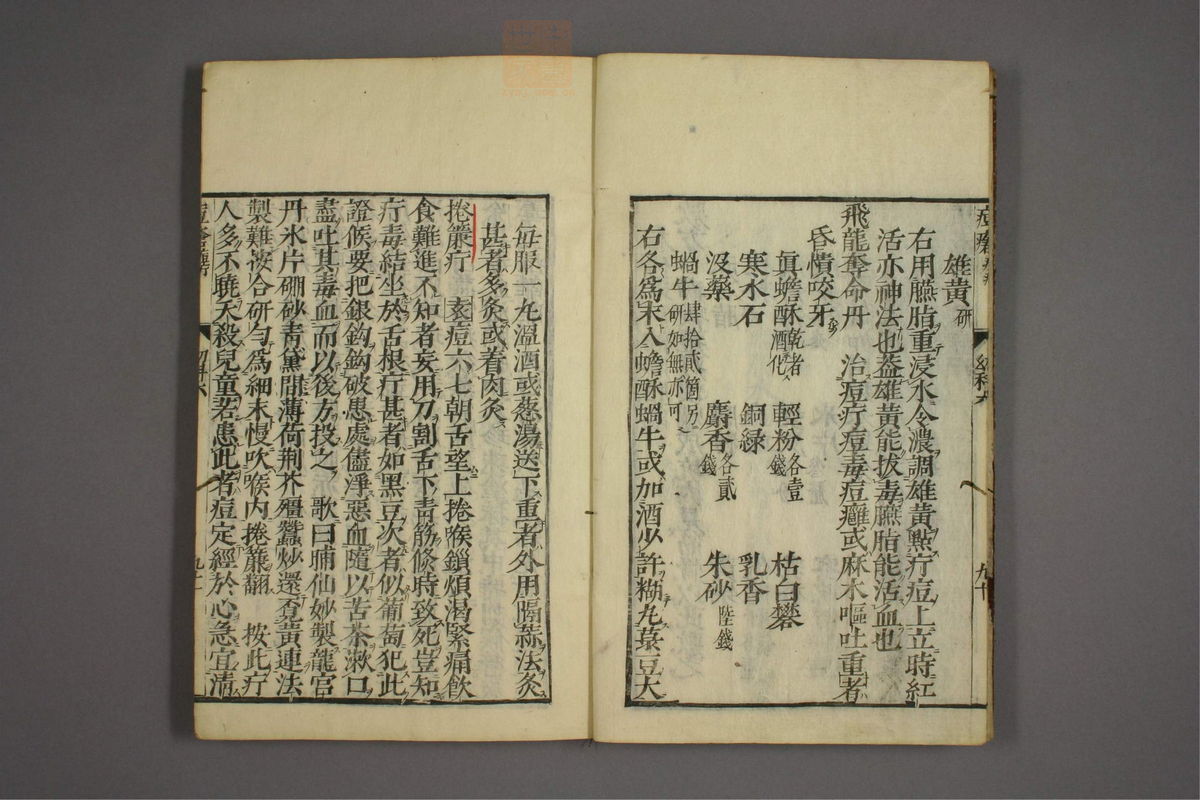 雄黄研
右用臙脂重浸水令濃調雄黄點疔痘上立時紅
活亦神法也蓋雄黄能拔毒臙脂能活血也
飛龍奪命丹 治痘疔痘毒痘癰或麻木嘔吐重者
昏憒咬牙
眞蟾酥乾者酒化 輕粉各壹錢 枯白礬
寒水石 銅綠 乳香
沒藥 麝香各貳錢 朱砂陸錢
蝸牛肆拾貳箇另研如無亦可
右各爲末入蟾酥蝸牛或加酒少許糊丸菉豆大
每服一丸溫酒或葱湯送下重者外用隔蒜法灸
甚者多灸或着肉灸
捲簾疔 痘六七朝舌壅上捲喉鎖煩渴緊痛飲
食難進不知者妄用刀割舌下青筋倏時致死豈知
疔毒結坐於舌根疔甚者如黑豆次者似葡萄犯此
證候要把銀鈎鈎破患處儘淨惡血隨以苦茶漱口
盡吐其毒血而以後方投之 歌曰 仙妙製龍宫
丹氷片硼砂青黛間薄荷荆芥殭蠶炒還查黄連法
製難按合研勻爲細末慢吹喉内捲簾翻 按此疔
人多不曉夭殺兒童若患此者痘定經於心急宜清